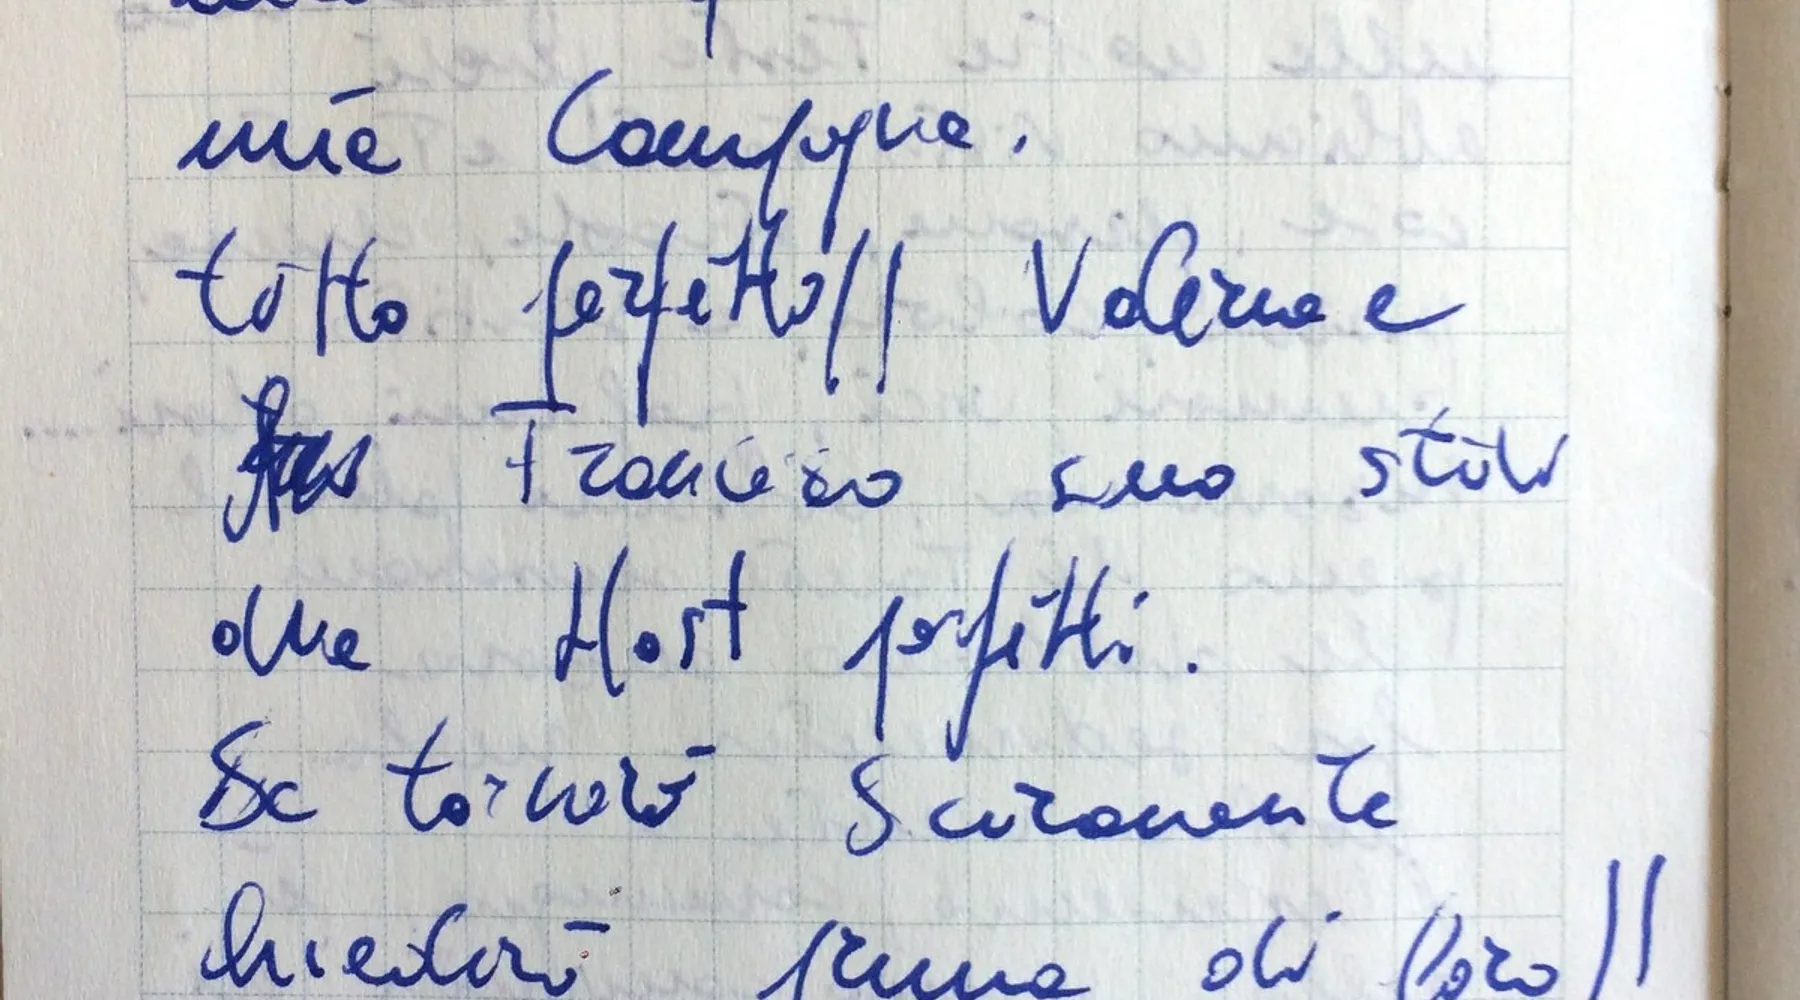 mia Compagna.
tutto perfetto!! Valeria e
Francesco sono stati
due Host perfetti.
Se tornerò sicuramente
chiederò prima di loro!!